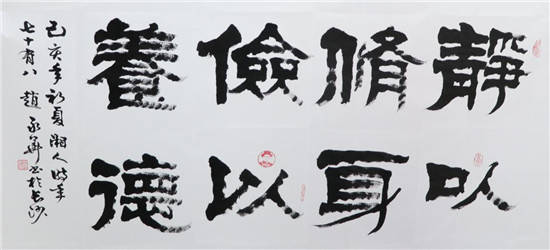 靜以
脩身
儉以
養德
己亥年初夏湘人時年
七十有八趙承華书於長沙